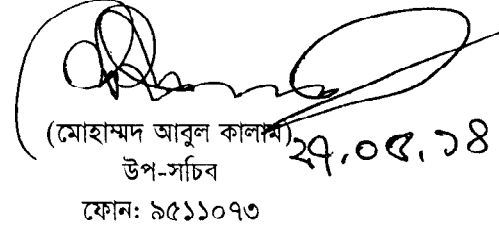 (মোহাম্মদ আবুল কালাম)
২৭.০৫.১৪
উপ-সচিব
ফোন: ৯৫১১০৭৩